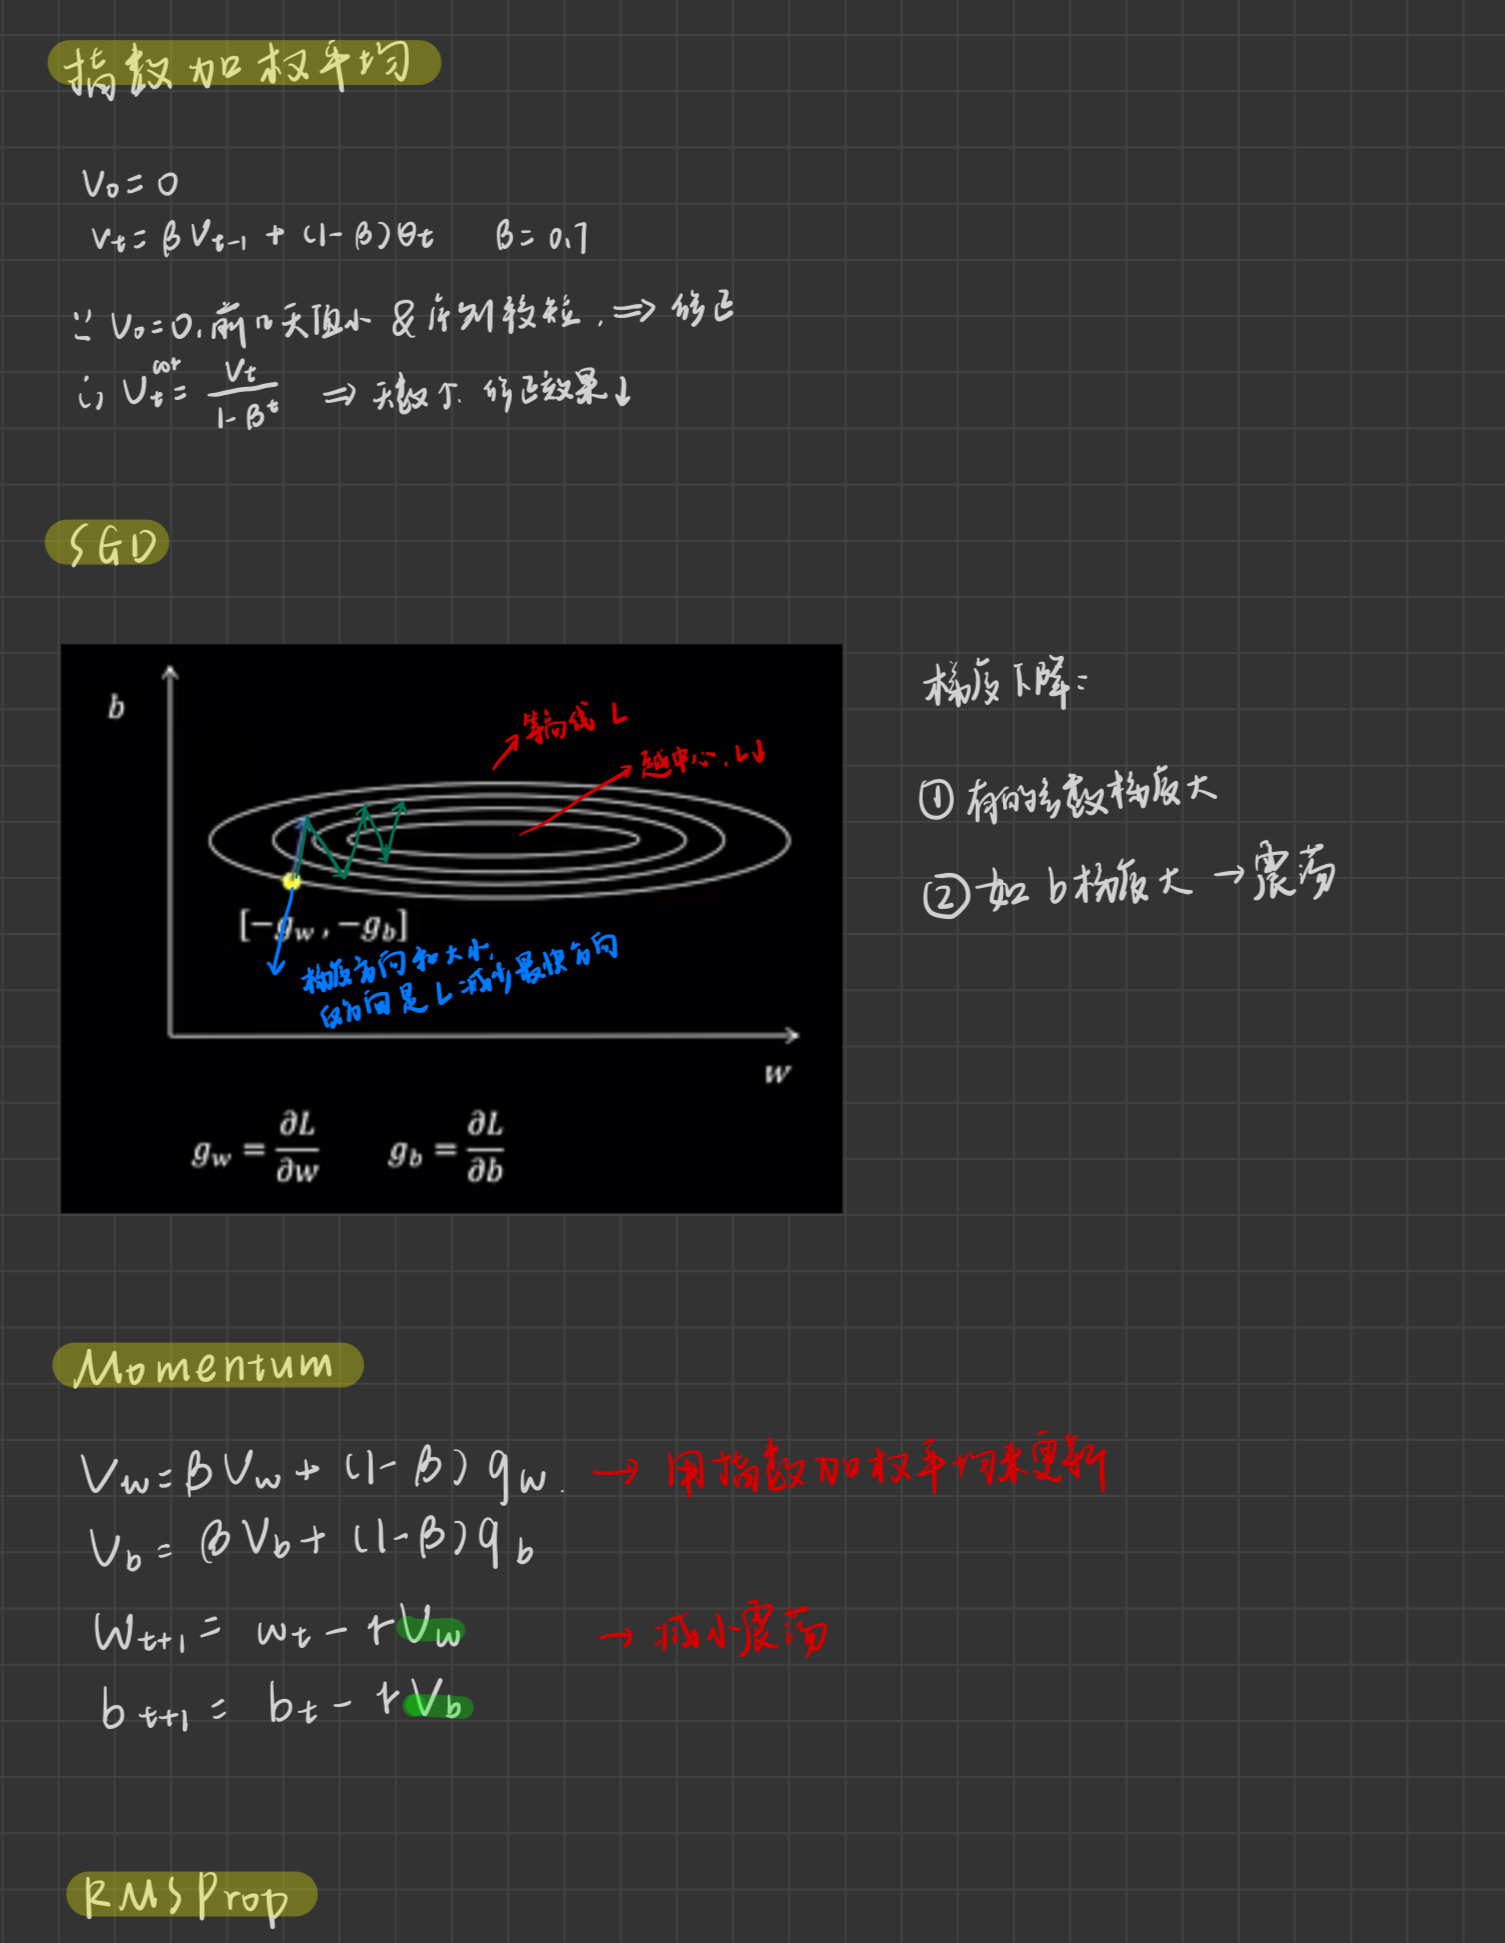 指数加权平均
V₀ = 0
Vt = βVt-1 + (1-β)θt   β = 0.7
∵ V₀ = 0, 前几天值小 & 序列较短, ⇒ 修正
∴ Vt^cor = Vt / (1-β^t) ⇒ 天数↑ 修正效果↓
SGD
b
等高线 L
越中心, L↓
[-gw, -gb]
梯度方向和大小,
反方向是 L 减少最快方向
w
gw = ∂L/∂w   gb = ∂L/∂b
梯度下降:
① 有的参数梯度大
② 如 b 梯度大 → 震荡
Momentum
Vw = βVw + (1-β)gw. → 用指数加权平均来更新
Vb = βVb + (1-β)gb
Wt+1 = wt - rVw → 减小震荡
bt+1 = bt - rVb
RMSProp